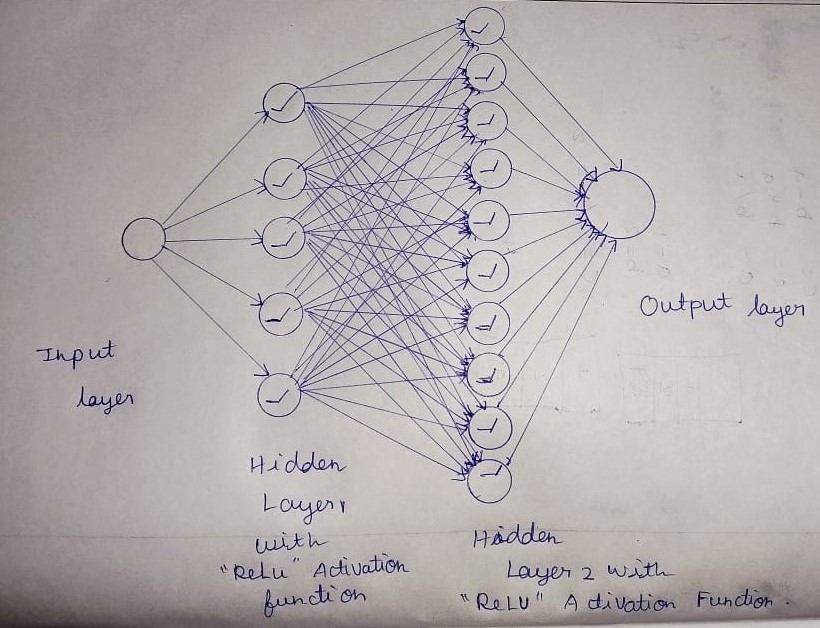 Input
layer
Hidden
Layer 1
with
"ReLu" Activation
function
Hidden
Layer 2 with
"ReLU" Activation Function.
Output layer